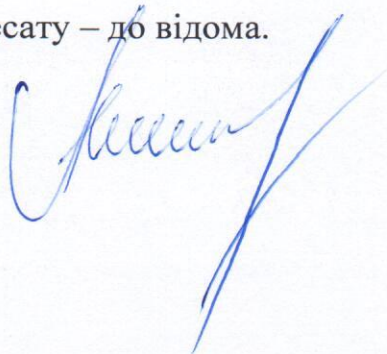 есату – до відома.